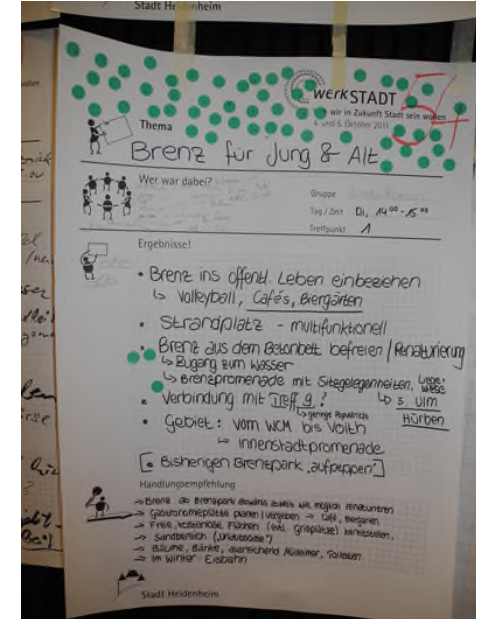 Stadt Heidenheim
werkSTADT
wir in Zukunft Stadt sein wollen
4. und 5. Oktober 2011
54
Thema
Brenz für Jung & Alt
Wer war dabei?
Gruppe
Tag / Zeit Di, 14⁰⁰ - 15⁰⁰
Treffpunkt 1
Ergebnisse!
• Brenz ins öffentl. Leben einbeziehen
↳ Volleyball, Cafés, Biergärten
• Strandplatz - multifunktionell
• Brenz aus dem Betonbett befreien / Renaturierung
↳ Zugang zum Wasser
↳ Brenzpromenade mit Sitzgelegenheiten, Liegewiese
• Verbindung mit Treff 9! ↳ s. Ulm
↳ geringe Popularität Hürben
• Gebiet: vom WCM bis Voith
↳ Innenstadtpromenade
[• Bisherigen Brenzpark „aufpeppen"]
Handlungsempfehlung
→ Brenz ab Brenzpark soweit wie möglich renaturieren
→ Gastronomieplätze planen / vorgeben → Café, Biergarten
→ Freie, kostenlose Flächen (evtl. Grillplätze) bereitstellen,
→ Sandbereich
→ Bäume, Bänke, ausreichend Mülleimer, Toiletten
→ Im Winter: Eisbahn
Stadt Heidenheim